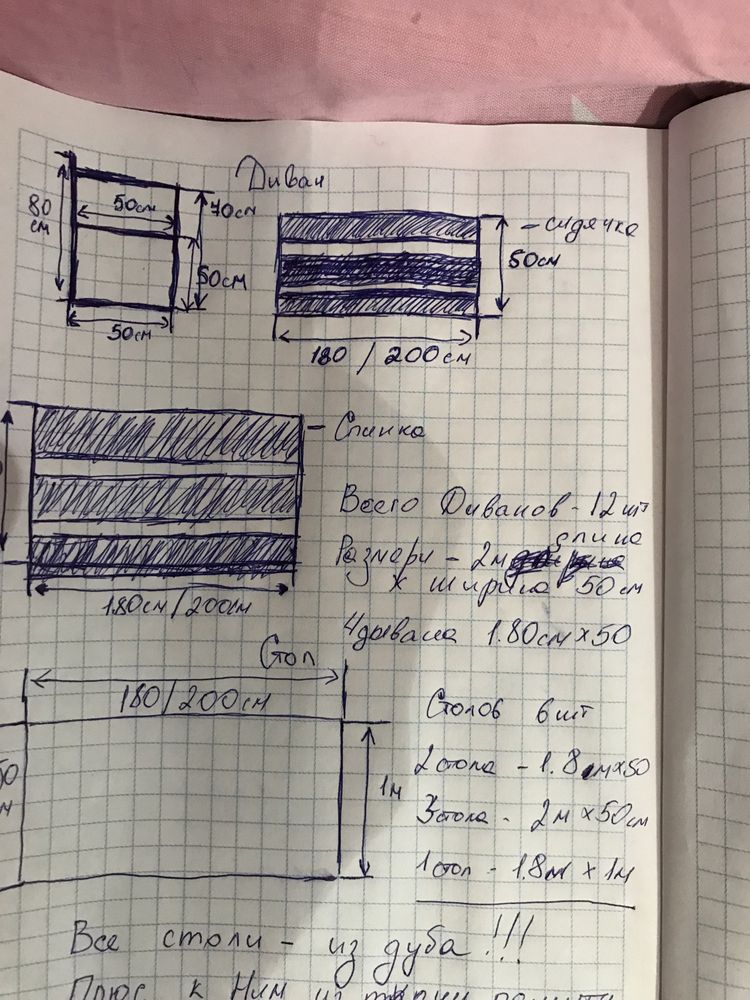 Диван
80 см
50см
70см
50см
50см
- сидячка
50см
180 / 200см
- Спинка
180см/200см
Всего Диванов - 12шт
длина
Размери - 2м
х ширина 50см
4дывана 1.80см х 50
Стол
180/200см
1м
Столов 6шт
2стола - 1.8м х 50
3стола - 2м х 50см
1стол - 1.8м х 1м
Все столи - из дуба !!!
Плюс к Ним из